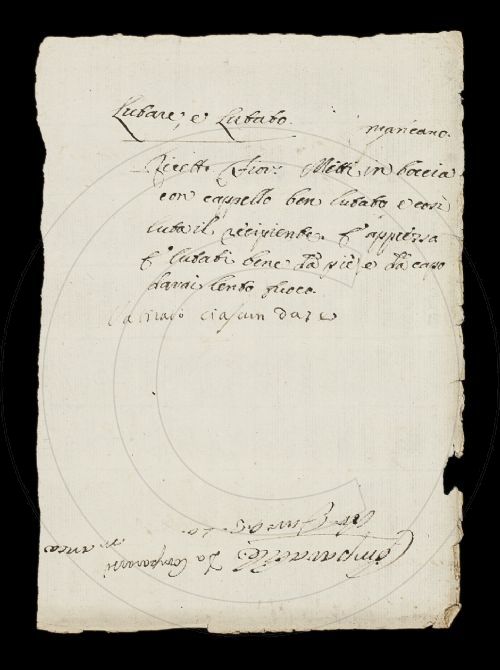 Lutare, e Lutato.
mancano.
Ricett. Fior: Metti in boccia
con cappello ben lutato e così
luta il recipiente. E appressa
E lutati bene da piè, e da capo
darai lento fuoco.
ciascun
Comparabile Da Compararsi
manca